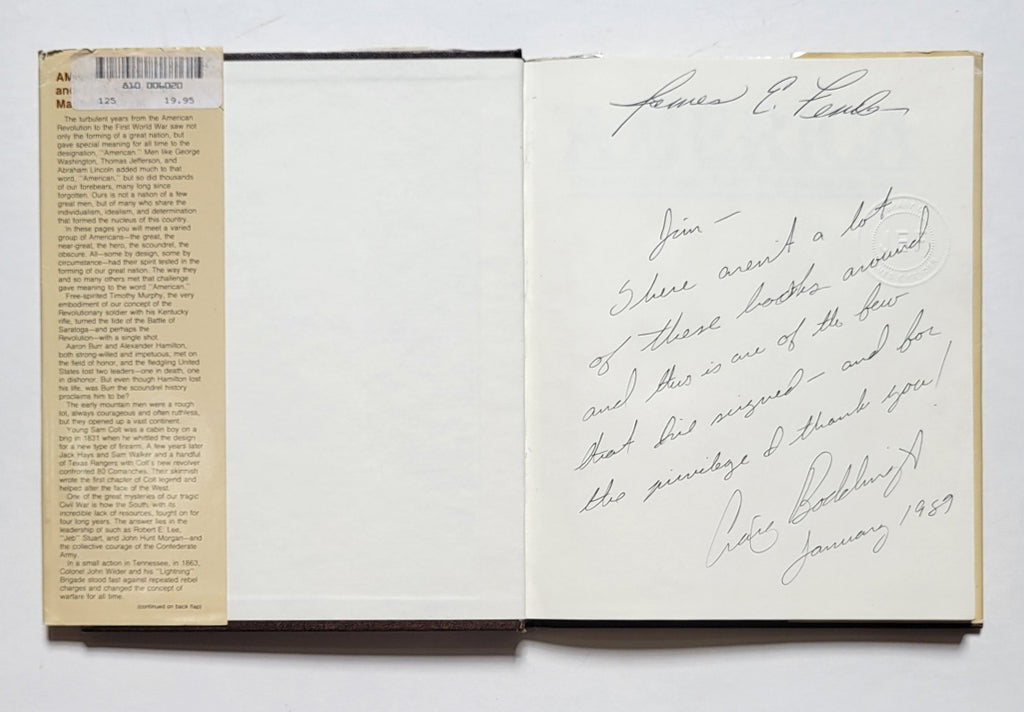 AM
and
Ma
A10 006020
125 19.95
The turbulent years from the American
Revolution to the First World War saw not
only the forming of a great nation, but
gave special meaning for all time to the
designation, "American." Men like George
Washington, Thomas Jefferson, and
Abraham Lincoln added much to that
word, "American," but so did thousands
of our forebears, many long since
forgotten. Ours is not a nation of a few
great men, but of many who share the
individualism, idealism, and determination
that formed the nucleus of this country.
In these pages you will meet a varied
group of Americans—the great, the
near-great, the hero, the scoundrel, the
obscure. All—some by design, some by
circumstance—had their spirit tested in the
forming of our great nation. The way they
and so many others met that challenge
gave meaning to the word "American."
Free-spirited Timothy Murphy, the very
embodiment of our concept of the
Revolutionary soldier with his Kentucky
rifle, turned the tide of the Battle of
Saratoga—and perhaps the
Revolution—with a single shot.
Aaron Burr and Alexander Hamilton,
both strong-willed and impetuous, met on
the field of honor, and the fledgling United
States lost two leaders—one in death, one
in dishonor. But even though Hamilton lost
his life, was Burr the scoundrel history
proclaims him to be?
The early mountain men were a rough
lot, always courageous and often ruthless,
but they opened up a vast continent.
Young Sam Colt was a cabin boy on a
brig in 1831 when he whittled the design
for a new type of firearm. A few years later
Jack Hays and Sam Walker and a handful
of Texas Rangers with Colt's new revolver
confronted 80 Comanches. Their skirmish
wrote the first chapter of Colt legend and
helped alter the face of the West.
One of the great mysteries of our tragic
Civil War is how the South, with its
incredible lack of resources, fought on for
four long years. The answer lies in the
leadership of such as Robert E. Lee,
"Jeb" Stuart, and John Hunt Morgan—and
the collective courage of the Confederate
Army.
In a small action in Tennessee, in 1863,
Colonel John Wilder and his "Lightning"
Brigade stood fast against repeated rebel
charges and changed the concept of
warfare for all time.
(continued on back flap)
James E.
Jim—
There aren't a lot
of these books around
and this is one of the few
that I've signed — and for
the privilege I thank you!
Craig Boddington
January 1989